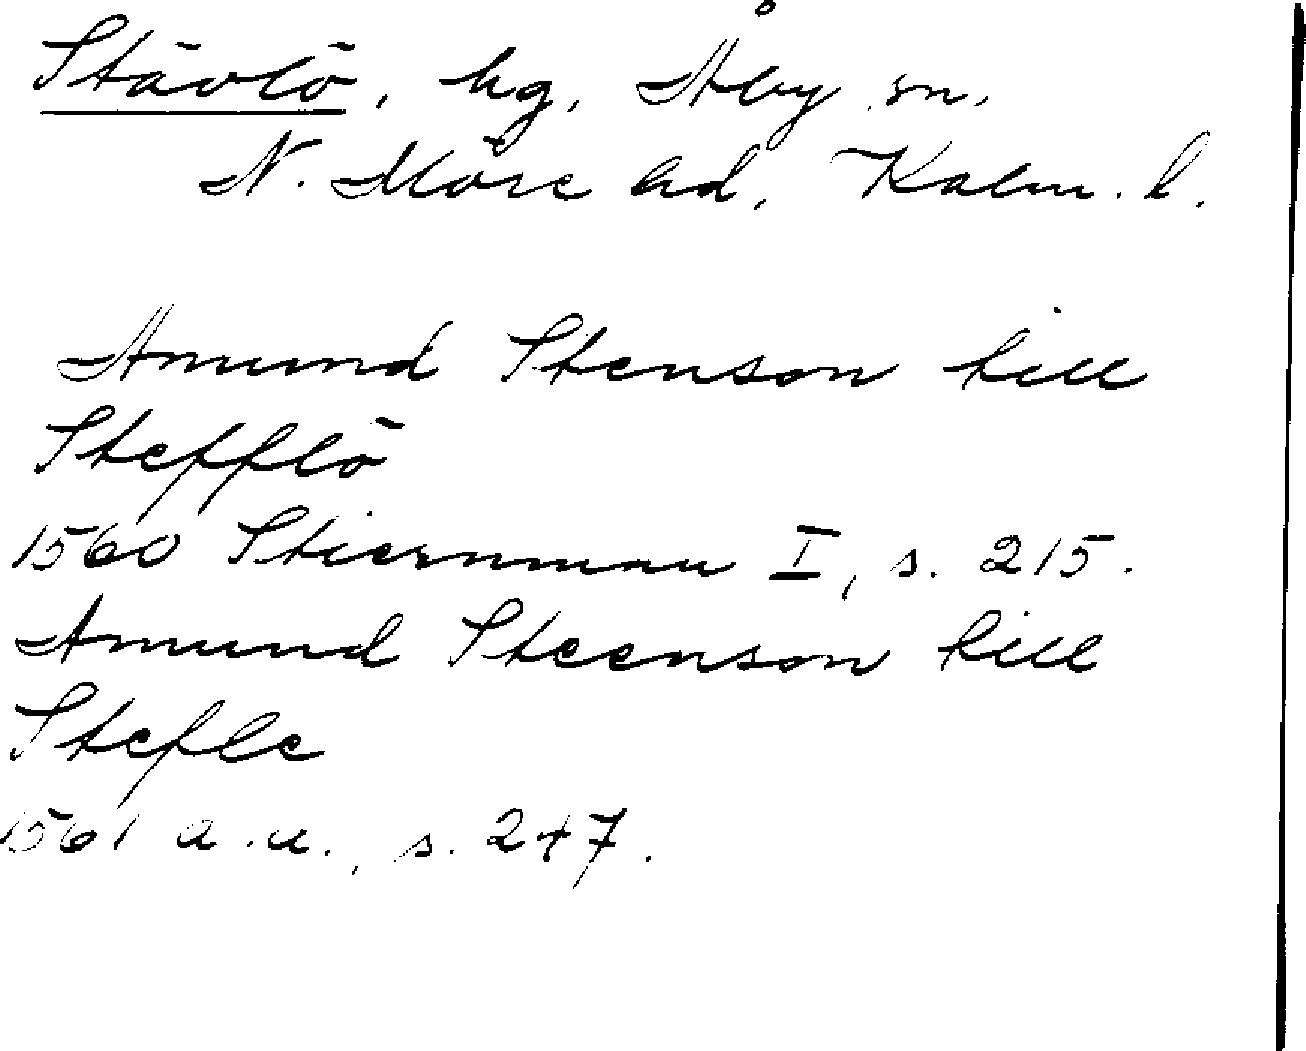 Stävlö, hg, Åby sn,
N. Möre hd, Kalm. l.
Amund Stenson till
Stefflö
1560 Stiernman I, s. 215.
Amund Steenson till
Stefle
1561 a.a., s. 247.